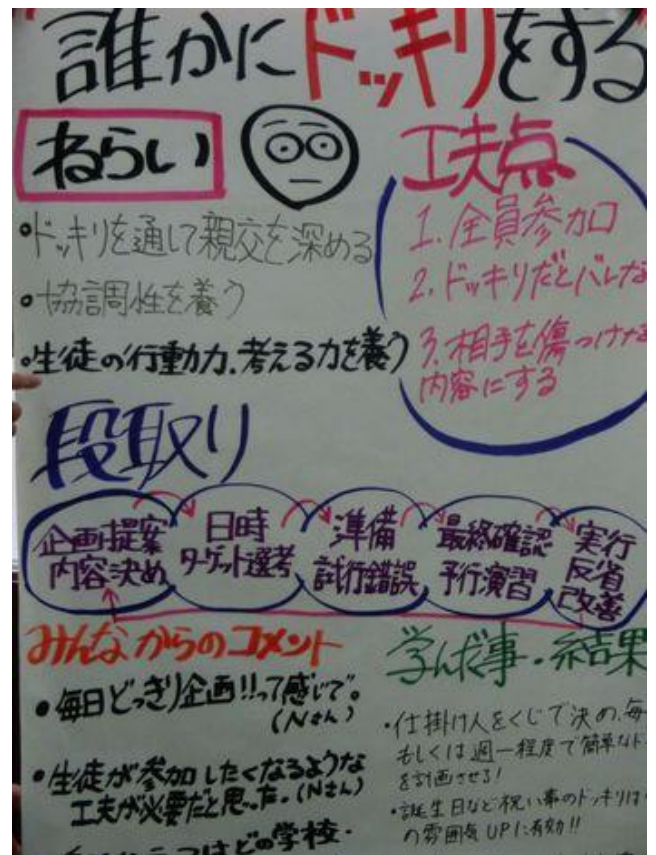 誰かにドッキリをする
ねらい
・ドッキリを通して親交を深める
・協調性を養う
・生徒の行動力、考える力を養う
工夫点
1. 全員参加
2. ドッキリだとバレな
3. 相手を傷つけな
内容にする
段取り
企画提案
内容決め
日時
ターゲット選考
準備
試行錯誤
最終確認
予行演習
実行
反省
改善
みんなからのコメント
・毎日どっきり企画!!って感じで。
(Nさん)
・生徒が参加したくなるような
工夫が必要だと思った。(Nさん)
はどの学校・
学んだ事・結果
・仕掛け人をくじで決め、毎
もしくは週一程度で簡単なド
を計画させる!
・誕生日など祝い事のドッキリは
の雰囲気UPに有効!!